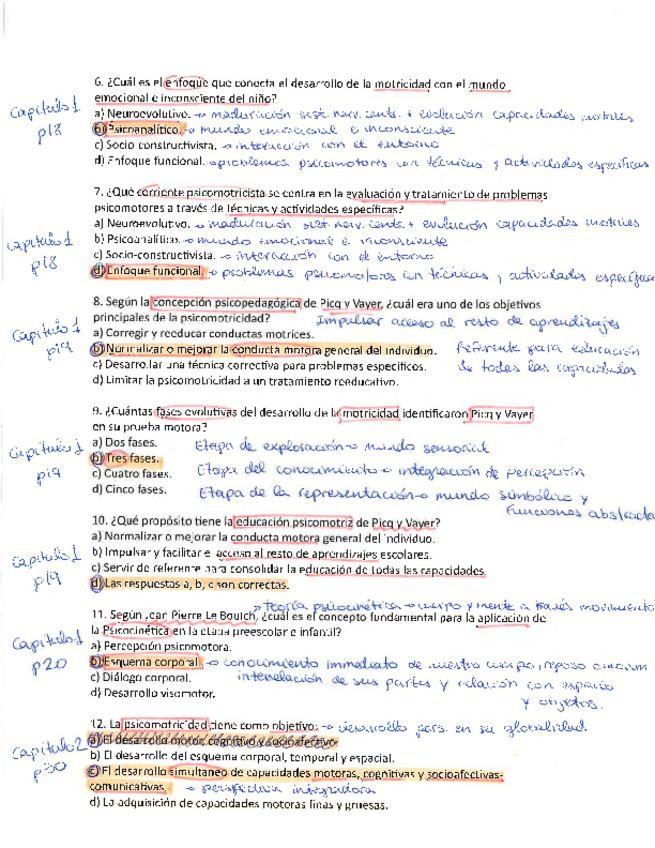 6. ¿Cuál es el enfoque que conecta el desarrollo de la motricidad con el mundo
emocional e inconsciente del niño?
Capítulo 1
p18
a) Neuroevolutivo. → maduración sist. nerv. cent. + evolución capacidades motrices
b) Psicoanalítico. → mundo emocional e inconsciente
c) Socio constructivista. → interacción con el entorno
d) Enfoque funcional. → problemas psicomotores con técnicas y actividades específicas
7. ¿Qué corriente psicomotricista se centra en la evaluación y tratamiento de problemas
psicomotores a través de técnicas y actividades específicas?
Capítulo 1
p18
a) Neuroevolutivo. → maduración sist. nerv. cent. + evolución capacidades motrices
b) Psicoanalítico. → mundo emocional e inconsciente
c) Socio-constructivista. → interacción con el entorno
d) Enfoque funcional. → problemas psicomotores con técnicas y actividades específicas
8. Según la concepción psicopedagógica de Picq y Vayer, ¿cuál era uno de los objetivos
principales de la psicomotricidad? Impulsar acceso al resto de aprendizajes
Capítulo 1
p19
a) Corregir y reeducar conductas motrices.
b) Normalizar o mejorar la conducta motora general del individuo. Referente para educación
c) Desarrollar una técnica correctiva para problemas específicos. de todas las capacidades
d) Limitar la psicomotricidad a un tratamiento reeducativo.
9. ¿Cuántas fases evolutivas del desarrollo de la motricidad identificaron Picq y Vayer
en su prueba motora?
Capítulo 1
p19
a) Dos fases. Etapa de exploración → mundo sensorial
b) Tres fases.
c) Cuatro fases. Etapa del conocimiento → integración de percepción
d) Cinco fases. Etapa de la representación → mundo simbólico y
funciones abstracta
10. ¿Qué propósito tiene la educación psicomotriz de Picq y Vayer?
a) Normalizar o mejorar la conducta motora general del individuo.
Capítulo 1
p19
b) Impulsar y facilitar el acceso al resto de aprendizajes escolares.
c) Servir de referente para consolidar la educación de todas las capacidades.
d) Las respuestas a, b, c son correctas.
→ Teoría psicocinética → cuerpo y mente a través movimiento
11. Según Jean Pierre Le Boulch, ¿cuál es el concepto fundamental para la aplicación de
la Psicocinética en la etapa preescolar e infantil?
Capítulo 1
p20
a) Percepción psicomotora.
b) Esquema corporal. → conocimiento inmediato de nuestro cuerpo, reposo o
c) Diálogo corporal. interrelación de sus partes y relación con espacio
d) Desarrollo visomotor. y objetos.
12. La psicomotricidad tiene como objetivo: → desarrollo pers. en su globalidad
Capítulo 2
p30
a) El desarrollo motor, cognitivo y socioafectivo
b) El desarrollo del esquema corporal, temporal y espacial.
c) El desarrollo simultaneo de capacidades motoras, cognitivas y socioafectivas-
comunicativas. → perspectiva integradora
d) La adquisición de capacidades motoras finas y gruesas.